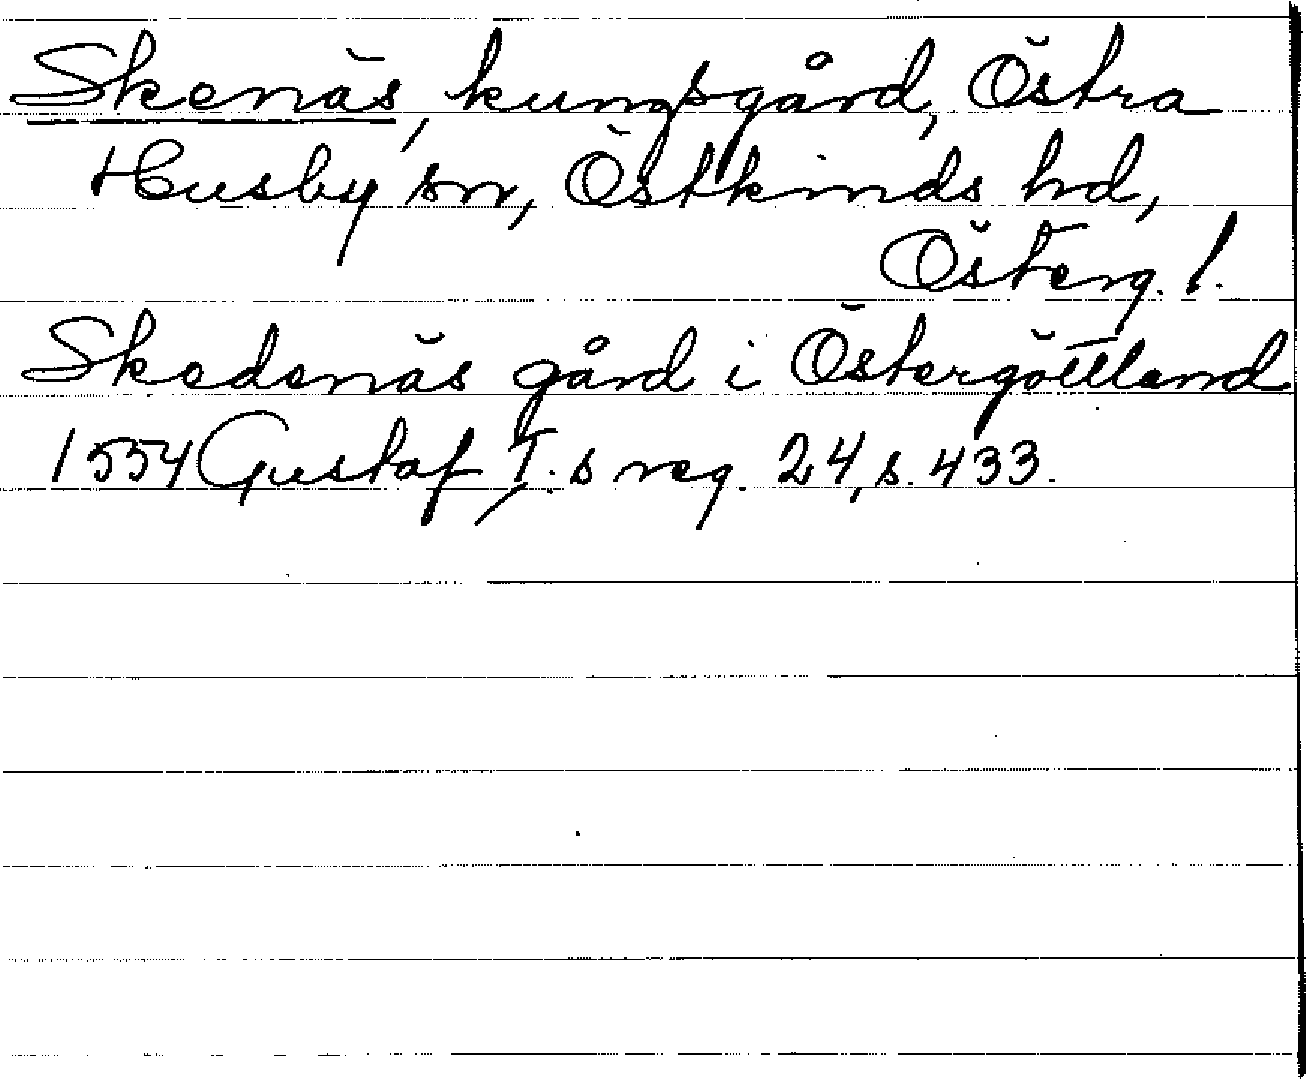 Skenäs, kungsgård, Östra
Husby sn, Östkinds hd,
Österg. l.
Skedenäs gård i Östergöttland
1554 Gustaf I.s reg. 24, s. 433.